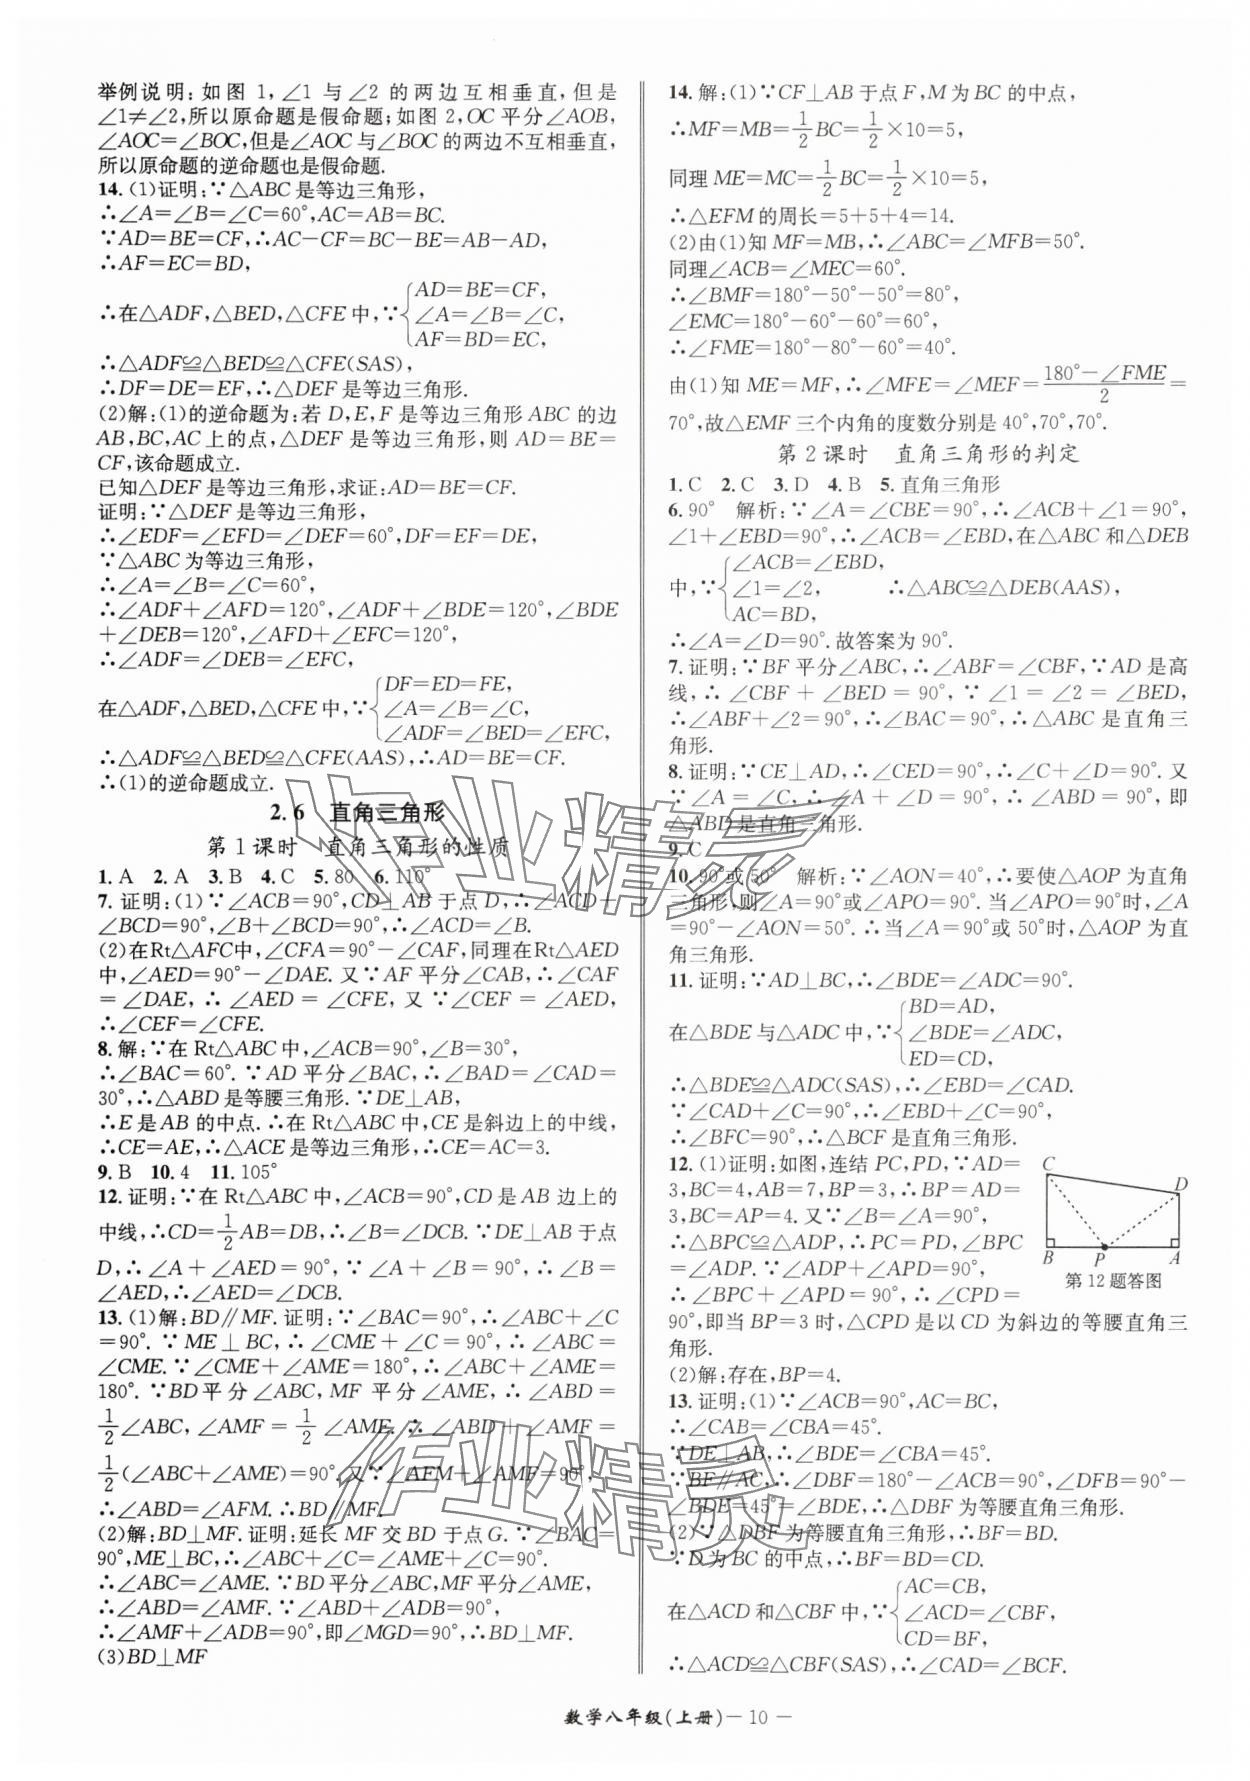 举例说明:如图 1,∠1 与∠2 的两边互相垂直,但是
∠1≠∠2,所以原命题是假命题;如图 2,OC 平分∠AOB,
∠AOC=∠BOC,但是∠AOC 与∠BOC 的两边不互相垂直,
所以原命题的逆命题也是假命题.
14.(1)证明:∵△ABC 是等边三角形,
∴∠A=∠B=∠C=60°,AC=AB=BC.
∵AD=BE=CF,∴AC-CF=BC-BE=AB-AD,
∴AF=EC=BD,
∴在△ADF,△BED,△CFE 中,∵{AD=BE=CF,
∠A=∠B=∠C,
AF=BD=EC,
∴△ADF≌△BED≌△CFE(SAS),
∴DF=DE=EF,∴△DEF 是等边三角形.
(2)解:(1)的逆命题为:若 D,E,F 是等边三角形 ABC 的边
AB,BC,AC 上的点,△DEF 是等边三角形,则 AD=BE=
CF,该命题成立.
已知△DEF 是等边三角形,求证:AD=BE=CF.
证明:∵△DEF 是等边三角形,
∴∠EDF=∠EFD=∠DEF=60°,DF=EF=DE,
∵△ABC 为等边三角形,
∴∠A=∠B=∠C=60°,
∴∠ADF+∠AFD=120°,∠ADF+∠BDE=120°,∠BDE
+∠DEB=120°,∠AFD+∠EFC=120°,
∴∠ADF=∠DEB=∠EFC,
在△ADF,△BED,△CFE 中,∵{DF=ED=FE,
∠A=∠B=∠C,
∠ADF=∠BED=∠EFC,
∴△ADF≌△BED≌△CFE(AAS),∴AD=BE=CF.
∴(1)的逆命题成立.
2.6 直角三角形
第 1 课时 直角三角形的性质
1. A 2. A 3. B 4. C 5. 80 6. 110°
7. 证明:(1)∵∠ACB=90°,CD⊥AB 于点 D,∴∠ACD+
∠BCD=90°,∠B+∠BCD=90°,∴∠ACD=∠B.
(2)在Rt△AFC中,∠CFA=90°-∠CAF,同理在Rt△AED
中,∠AED=90°-∠DAE. 又∵AF 平分∠CAB,∴∠CAF
=∠DAE,∴∠AED=∠CFE,又∵∠CEF=∠AED,
∴∠CEF=∠CFE.
8. 解:∵在 Rt△ABC 中,∠ACB=90°,∠B=30°,
∴∠BAC=60°. ∵AD 平分∠BAC,∴∠BAD=∠CAD=
30°,∴△ABD 是等腰三角形. ∵DE⊥AB,
∴E 是 AB 的中点. ∴在 Rt△ABC 中,CE是斜边上的中线,
∴CE=AE,∴△ACE 是等边三角形,∴CE=AC=3.
9. B 10. 4 11. 105°
12. 证明:∵在 Rt△ABC 中,∠ACB=90°,CD 是 AB 边上的
中线,∴CD=1/2AB=DB,∴∠B=∠DCB. ∵DE⊥AB 于点
D,∴∠A+∠AED=90°,∵∠A+∠B=90°,∴∠B=
∠AED,∴∠AED=∠DCB.
13.(1)解:BD∥MF. 证明:∵∠BAC=90°,∴∠ABC+∠C
=90°. ∵ME⊥BC,∴∠CME+∠C=90°,∴∠ABC=
∠CME. ∵∠CME+∠AME=180°,∴∠ABC+∠AME=
180°. ∵BD平分∠ABC,MF 平分∠AME,∴∠ABD=
1/2∠ABC,∠AMF=1/2∠AME. ∴∠ABD+∠AMF=
1/2(∠ABC+∠AME)=90°. 又∵∠AFM+∠AMF=90°,
∴∠ABD=∠AFM. ∴BD∥MF.
(2)解:BD⊥MF. 证明:延长 MF 交 BD 于点 G. ∵∠BAC=
90°,ME⊥BC,∴∠ABC+∠C=∠AME+∠C=90°.
∴∠ABC=∠AME. ∵BD平分∠ABC,MF平分∠AME,
∴∠ABD=∠AMF. ∵∠ABD+∠ADB=90°,
∴∠AMF+∠ADB=90°,即∠MGD=90°,∴BD⊥MF.
(3)BD⊥MF
14. 解:(1)∵CF⊥AB 于点 F,M 为 BC 的中点,
∴MF=MB=1/2BC=1/2×10=5,
同理 ME=MC=1/2BC=1/2×10=5,
∴△EFM 的周长=5+5+4=14.
(2)由(1)知 MF=MB,∴∠ABC=∠MFB=50°.
同理∠ACB=∠MEC=60°.
∴∠BMF=180°-50°-50°=80°,
∠EMC=180°-60°-60°=60°,
∴∠FME=180°-80°-60°=40°.
由(1)知 ME=MF,∴∠MFE=∠MEF=(180°-∠FME)/2=
70°,故△EMF 三个内角的度数分别是 40°,70°,70°.
第 2 课时 直角三角形的判定
1. C 2. C 3. D 4. B 5. 直角三角形
6. 90° 解析:∵∠A=∠CBE=90°,∴∠ACB+∠1=90°,
∠1+∠EBD=90°,∴∠ACB=∠EBD,在△ABC 和△DEB
中,∵{∠ACB=∠EBD,
∠1=∠2,
AC=BD,
∴△ABC≌△DEB(AAS),
∴∠A=∠D=90°. 故答案为 90°.
7. 证明:∵BF 平分∠ABC,∴∠ABF=∠CBF,∵AD 是高
线,∴∠CBF+∠BED=90°,∵∠1=∠2=∠BED,
∴∠ABF+∠2=90°,∴∠BAC=90°,∴△ABC 是直角三
角形.
8. 证明:∵CE⊥AD,∴∠CED=90°,∴∠C+∠D=90°. 又
∵∠A=∠C,∴∠A+∠D=90°,∴∠ABD=90°,即
△ABD是直角三角形.
9. C
10. 90°或50° 解析:∵∠AON=40°,∴要使△AOP 为直角
三角形,则∠A=90°或∠APO=90°. 当∠APO=90°时,∠A
=90°-∠AON=50°. ∴当∠A=90°或 50°时,△AOP 为直
角三角形.
11. 证明:∵AD⊥BC,∴∠BDE=∠ADC=90°.
在△BDE 与△ADC 中,∵{BD=AD,
∠BDE=∠ADC,
ED=CD,
∴△BDE≌△ADC(SAS),∴∠EBD=∠CAD.
∵∠CAD+∠C=90°,∴∠EBD+∠C=90°,
∴∠BFC=90°,∴△BCF 是直角三角形.
12.(1)证明:如图,连结 PC,PD,∵AD=
3,BC=4,AB=7,BP=3,∴BP=AD=
3,BC=AP=4. 又∵∠B=∠A=90°,
∴△BPC≌△ADP,∴PC=PD,∠BPC
=∠ADP. ∵∠ADP+∠APD=90°,
∴∠BPC+∠APD=90°,∴∠CPD=
90°,即当 BP=3 时,△CPD 是以 CD 为斜边的等腰直角三
角形.
(2)解:存在,BP=4.
C
D
B
P
A
第 12 题答图
13. 证明:(1)∵∠ACB=90°,AC=BC,
∴∠CAB=∠CBA=45°.
∵DE⊥AB,∴∠BDE=∠CBA=45°.
∵BF∥AC,∴∠DBF=180°-∠ACB=90°,∠DFB=90°-
∠BDE=45°=∠BDE,∴△DBF 为等腰直角三角形.
(2)∵△DBF 为等腰直角三角形,∴BF=BD.
∵D为 BC 的中点,∴BF=BD=CD.
在△ACD 和△CBF 中,∵{AC=CB,
∠ACD=∠CBF,
CD=BF,
∴△ACD≌△CBF(SAS),∴∠CAD=∠BCF.
数学八年级(上册)— 10 —
作业精灵
作业精灵